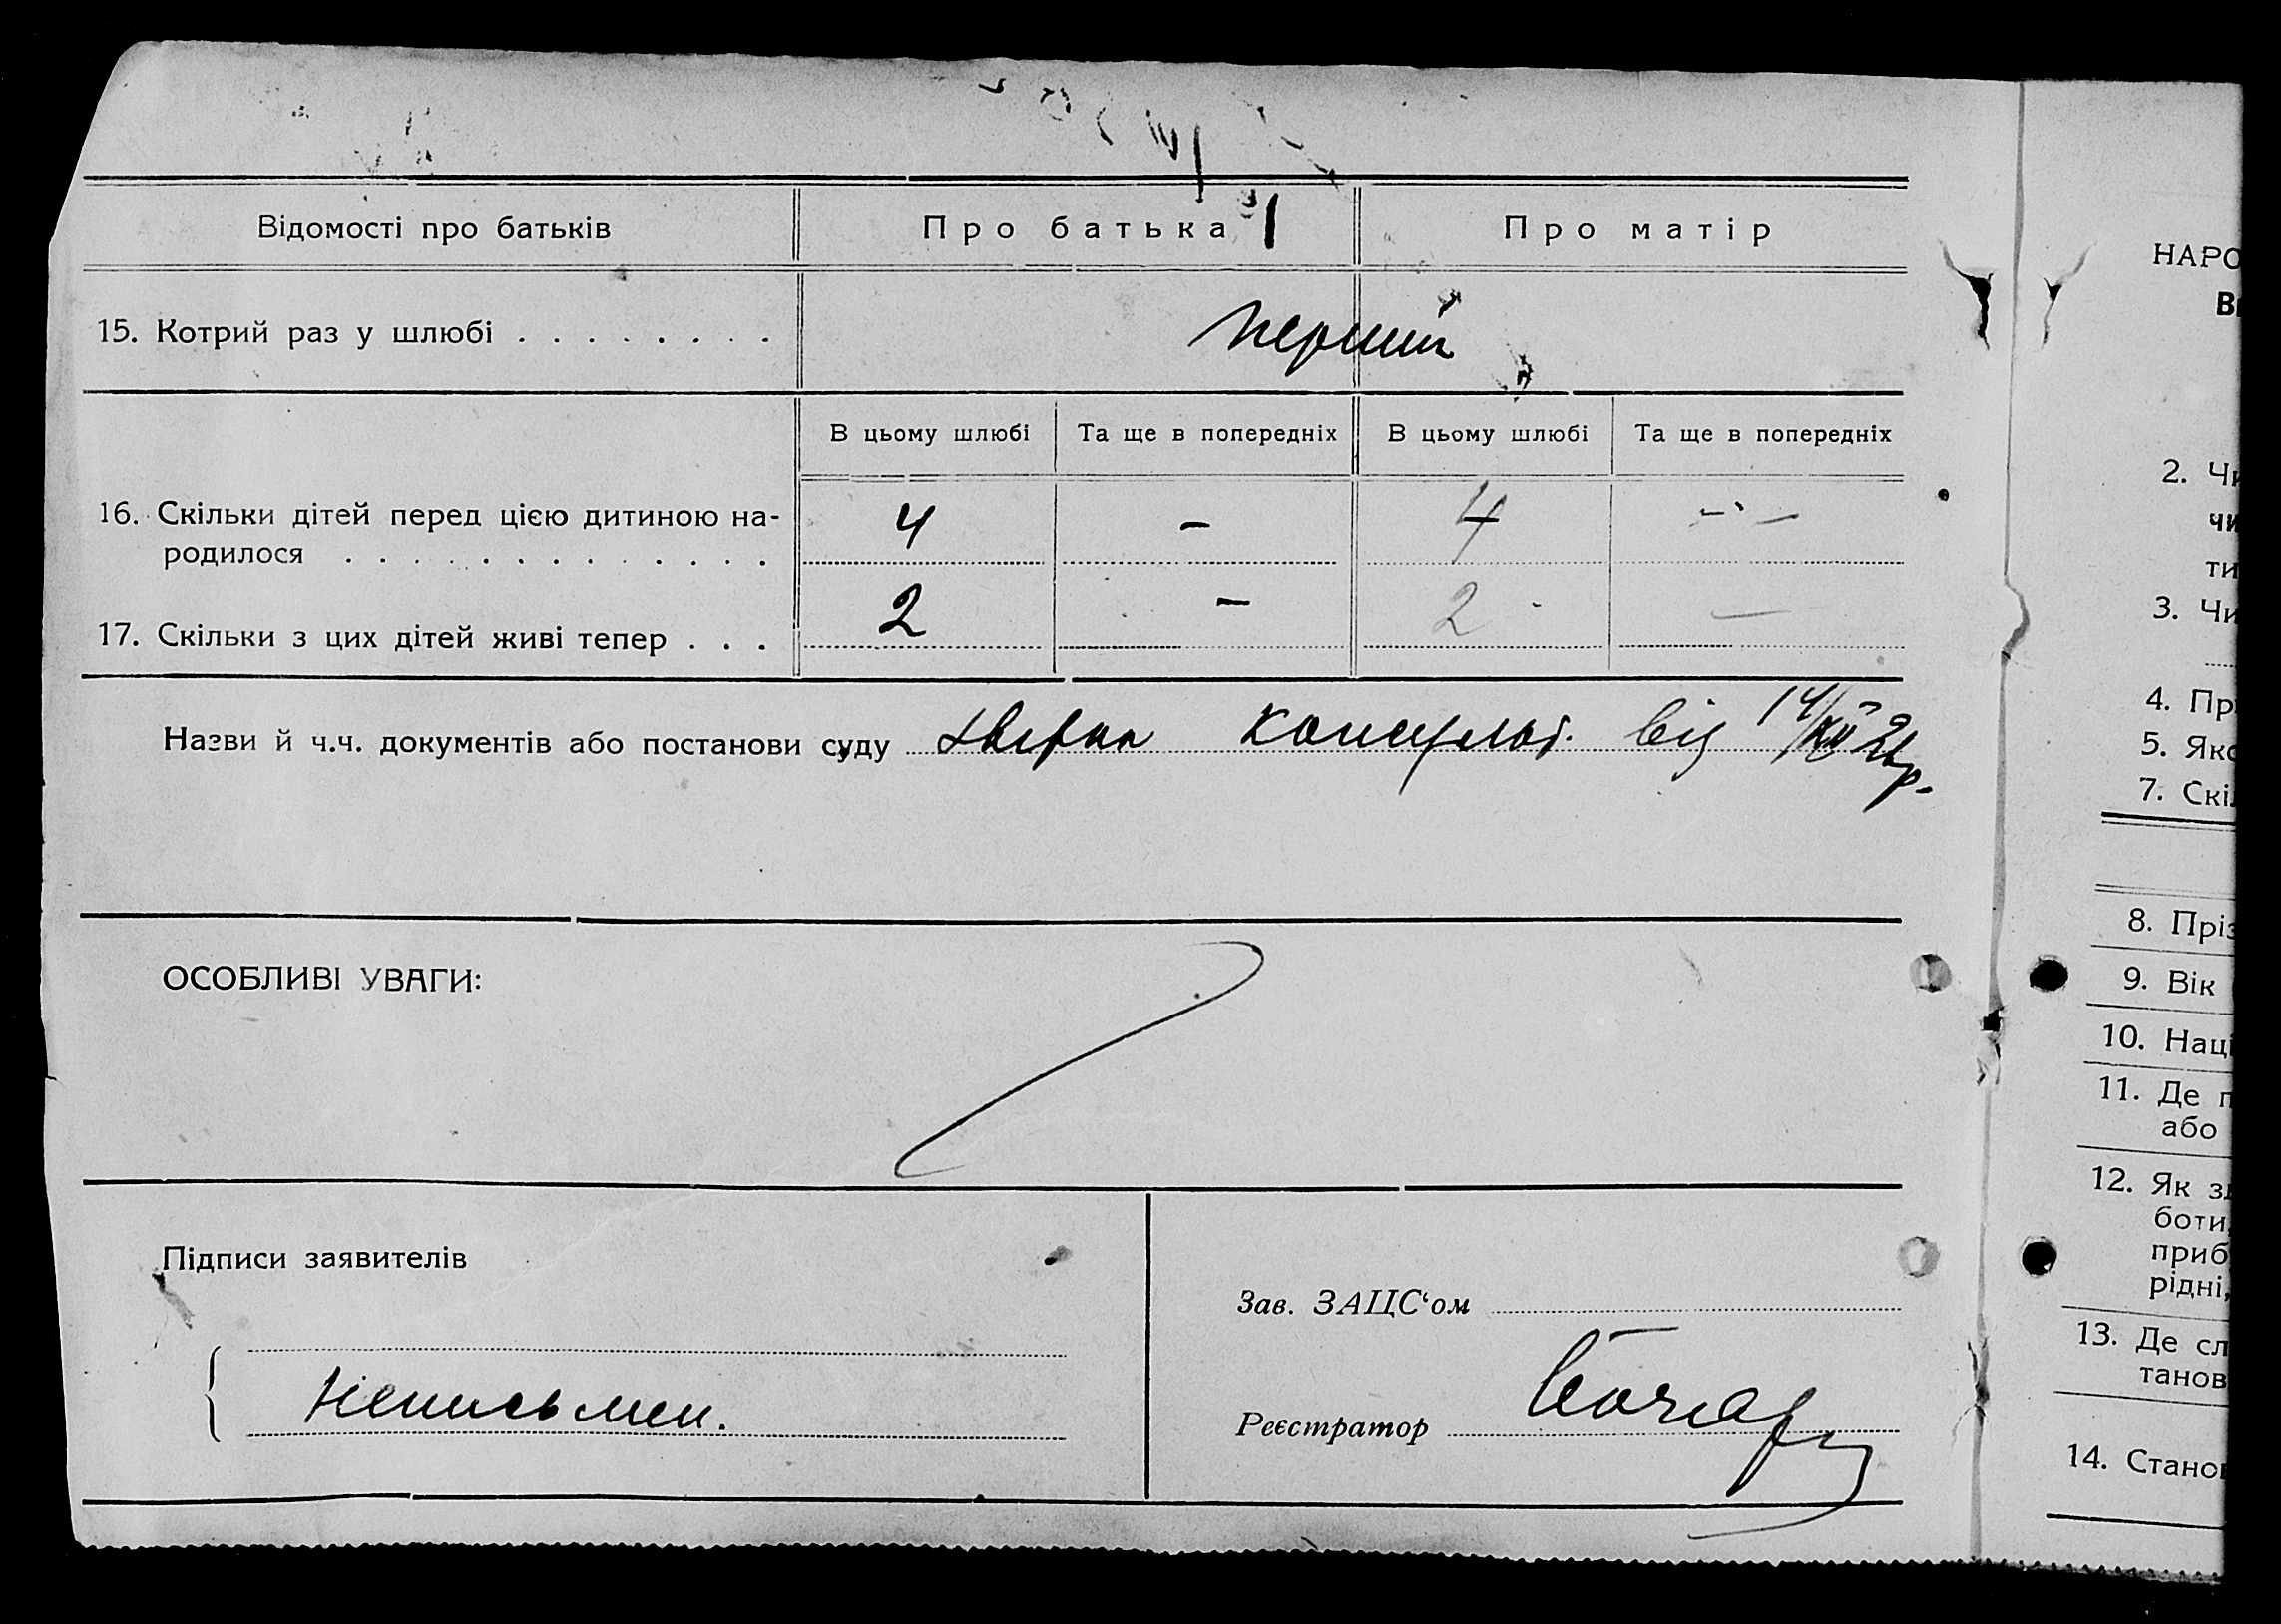 Відомості про батьків Про батька Про матір
15. Котрий раз у шлюбі . . . . . . . . перший
В цьому шлюбі Та ще в попередніх В цьому шлюбі Та ще в попередніх
16. Скільки дітей перед цією дитиною на-
родилося . . . . . . . . . . . . . 4 – 4 – –
17. Скільки з цих дітей живі тепер . . . 2 – 2 –
Назви й ч.ч. документів або постанови суду консульт. від 14/XII
ОСОБЛИВІ УВАГИ:
Підписи заявителів
Неписьмен.
Зав. ЗАЦС‘ом
Реєстратор
НАРО
2. Чи
чи
ти
3. Чи
4. Пр
5. Яко
7. Скі
8. Пріз
9. Вік
10. Наці
11. Де п
або
12. Як з
боти
приб
рідні,
13. Де сл
танов
14. Стано